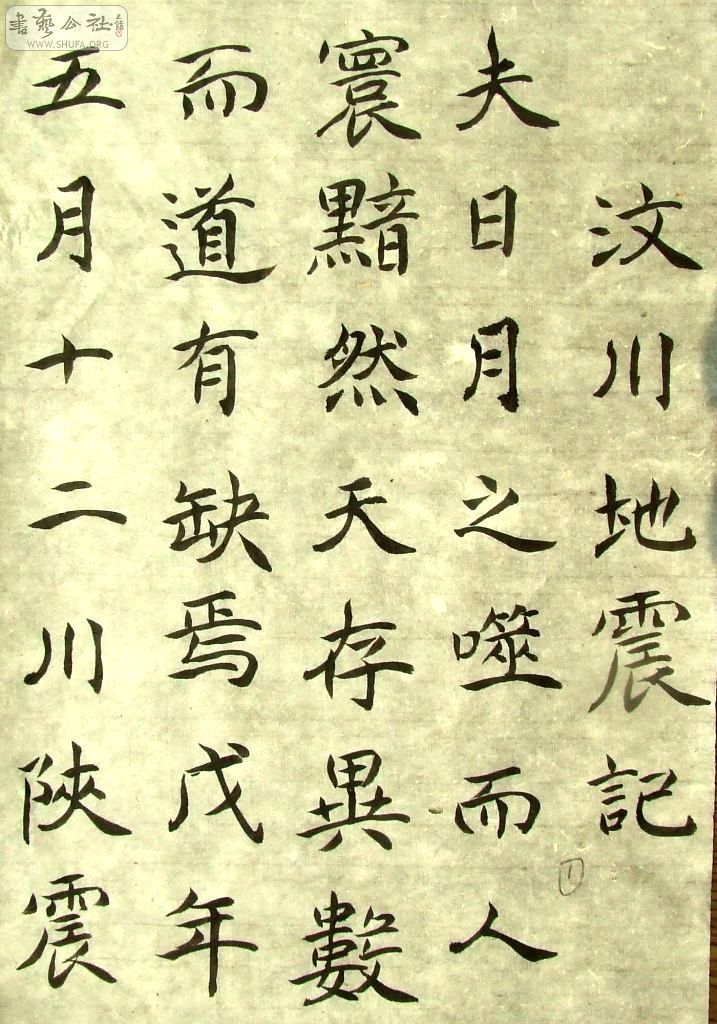 汶川地震記
夫日月之噬而人
寰黯然天存異數
而道有缺焉戊年
五月十二川陝震
①
書藝公社
WWW.SHUFA.ORG